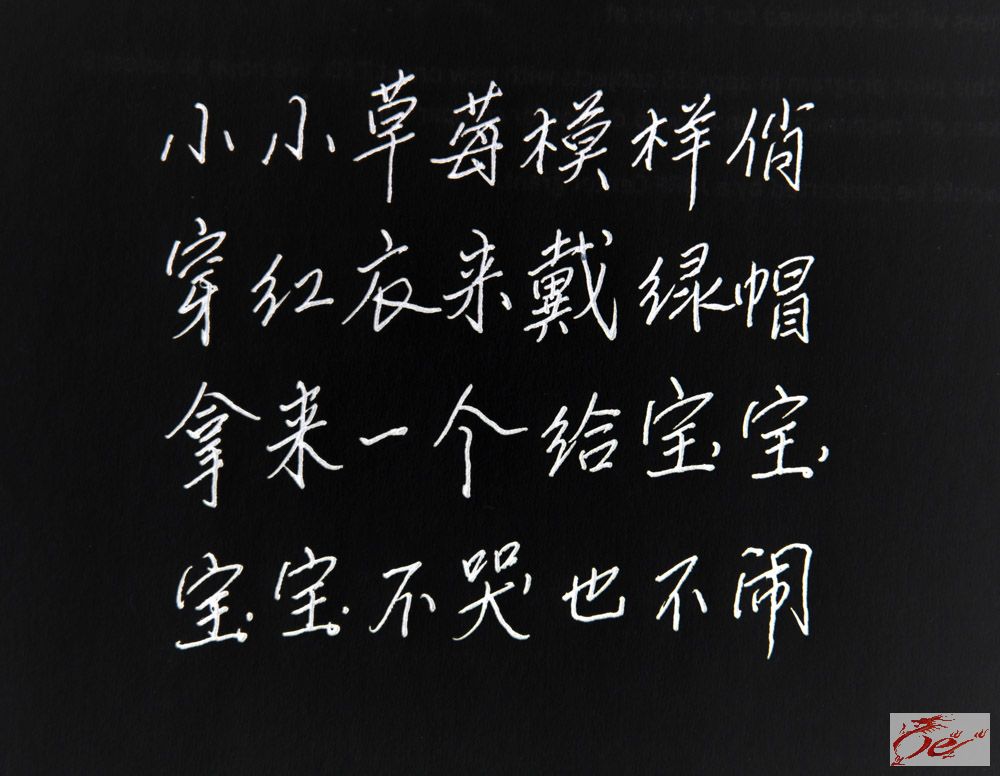 小小草莓模样俏
穿红衣来戴绿帽
拿来一个给宝宝
宝宝不哭也不闹